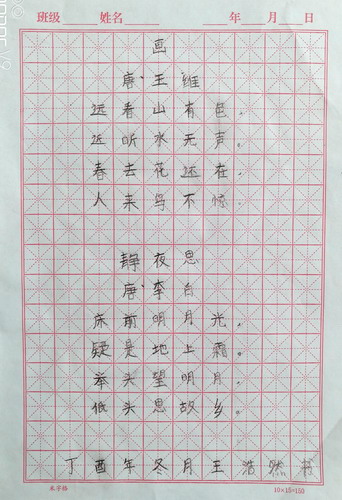 班级 姓名 年 月 日
画
唐、王维
远看山有色。
近听水无声。
春去花还在。
人来鸟不惊。
静夜思
唐、李白
床前明月光。
疑是地上霜。
举头望明月。
低头思故乡。
丁酉年冬月王浩然书
米字格 10×15=150